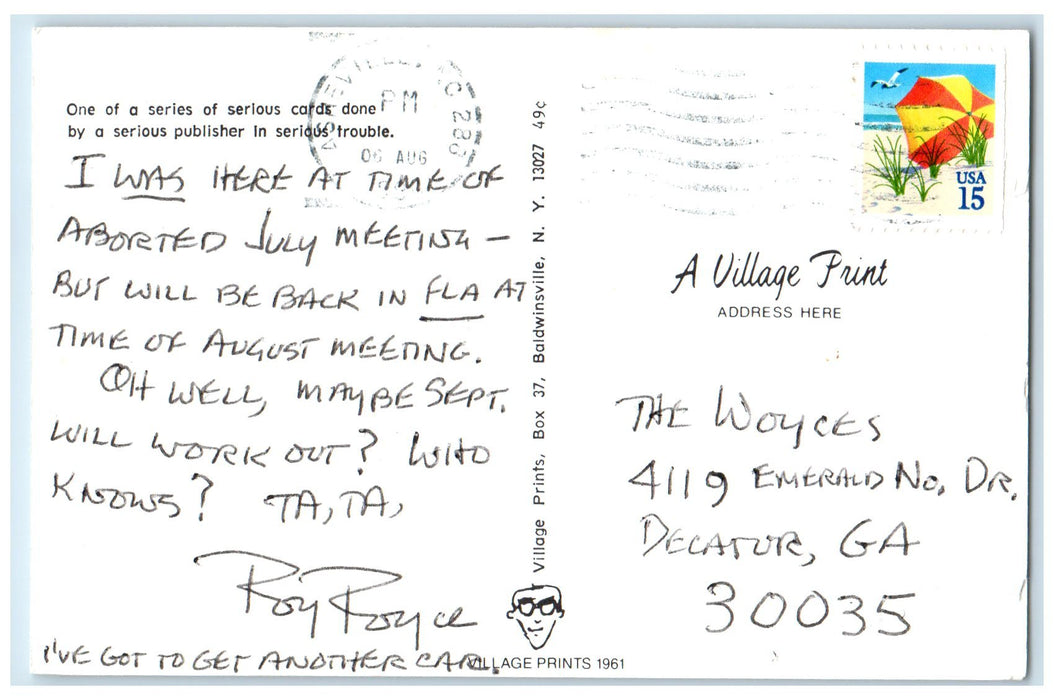 One of a series of serious cards done
by a serious publisher in serious trouble.
PM
06 AUG
I WAS HERE AT TIME OF
ABORTED JULY MEETING —
BUT WILL BE BACK IN FLA AT
TIME OF AUGUST MEETING.
OH WELL, MAYBE SEPT.
WILL WORK OUT? WHO
KNOWS? TA, TA,
Roy Royce
I'VE GOT TO GET ANOTHER CARD.
Village Prints, Box 37, Baldwinsville, N. Y. 13027 49¢
VILLAGE PRINTS 1961
USA
15
A Village Print
ADDRESS HERE
THE WOYCES
4119 EMERALD NO. DR.
DECATUR, GA
30035